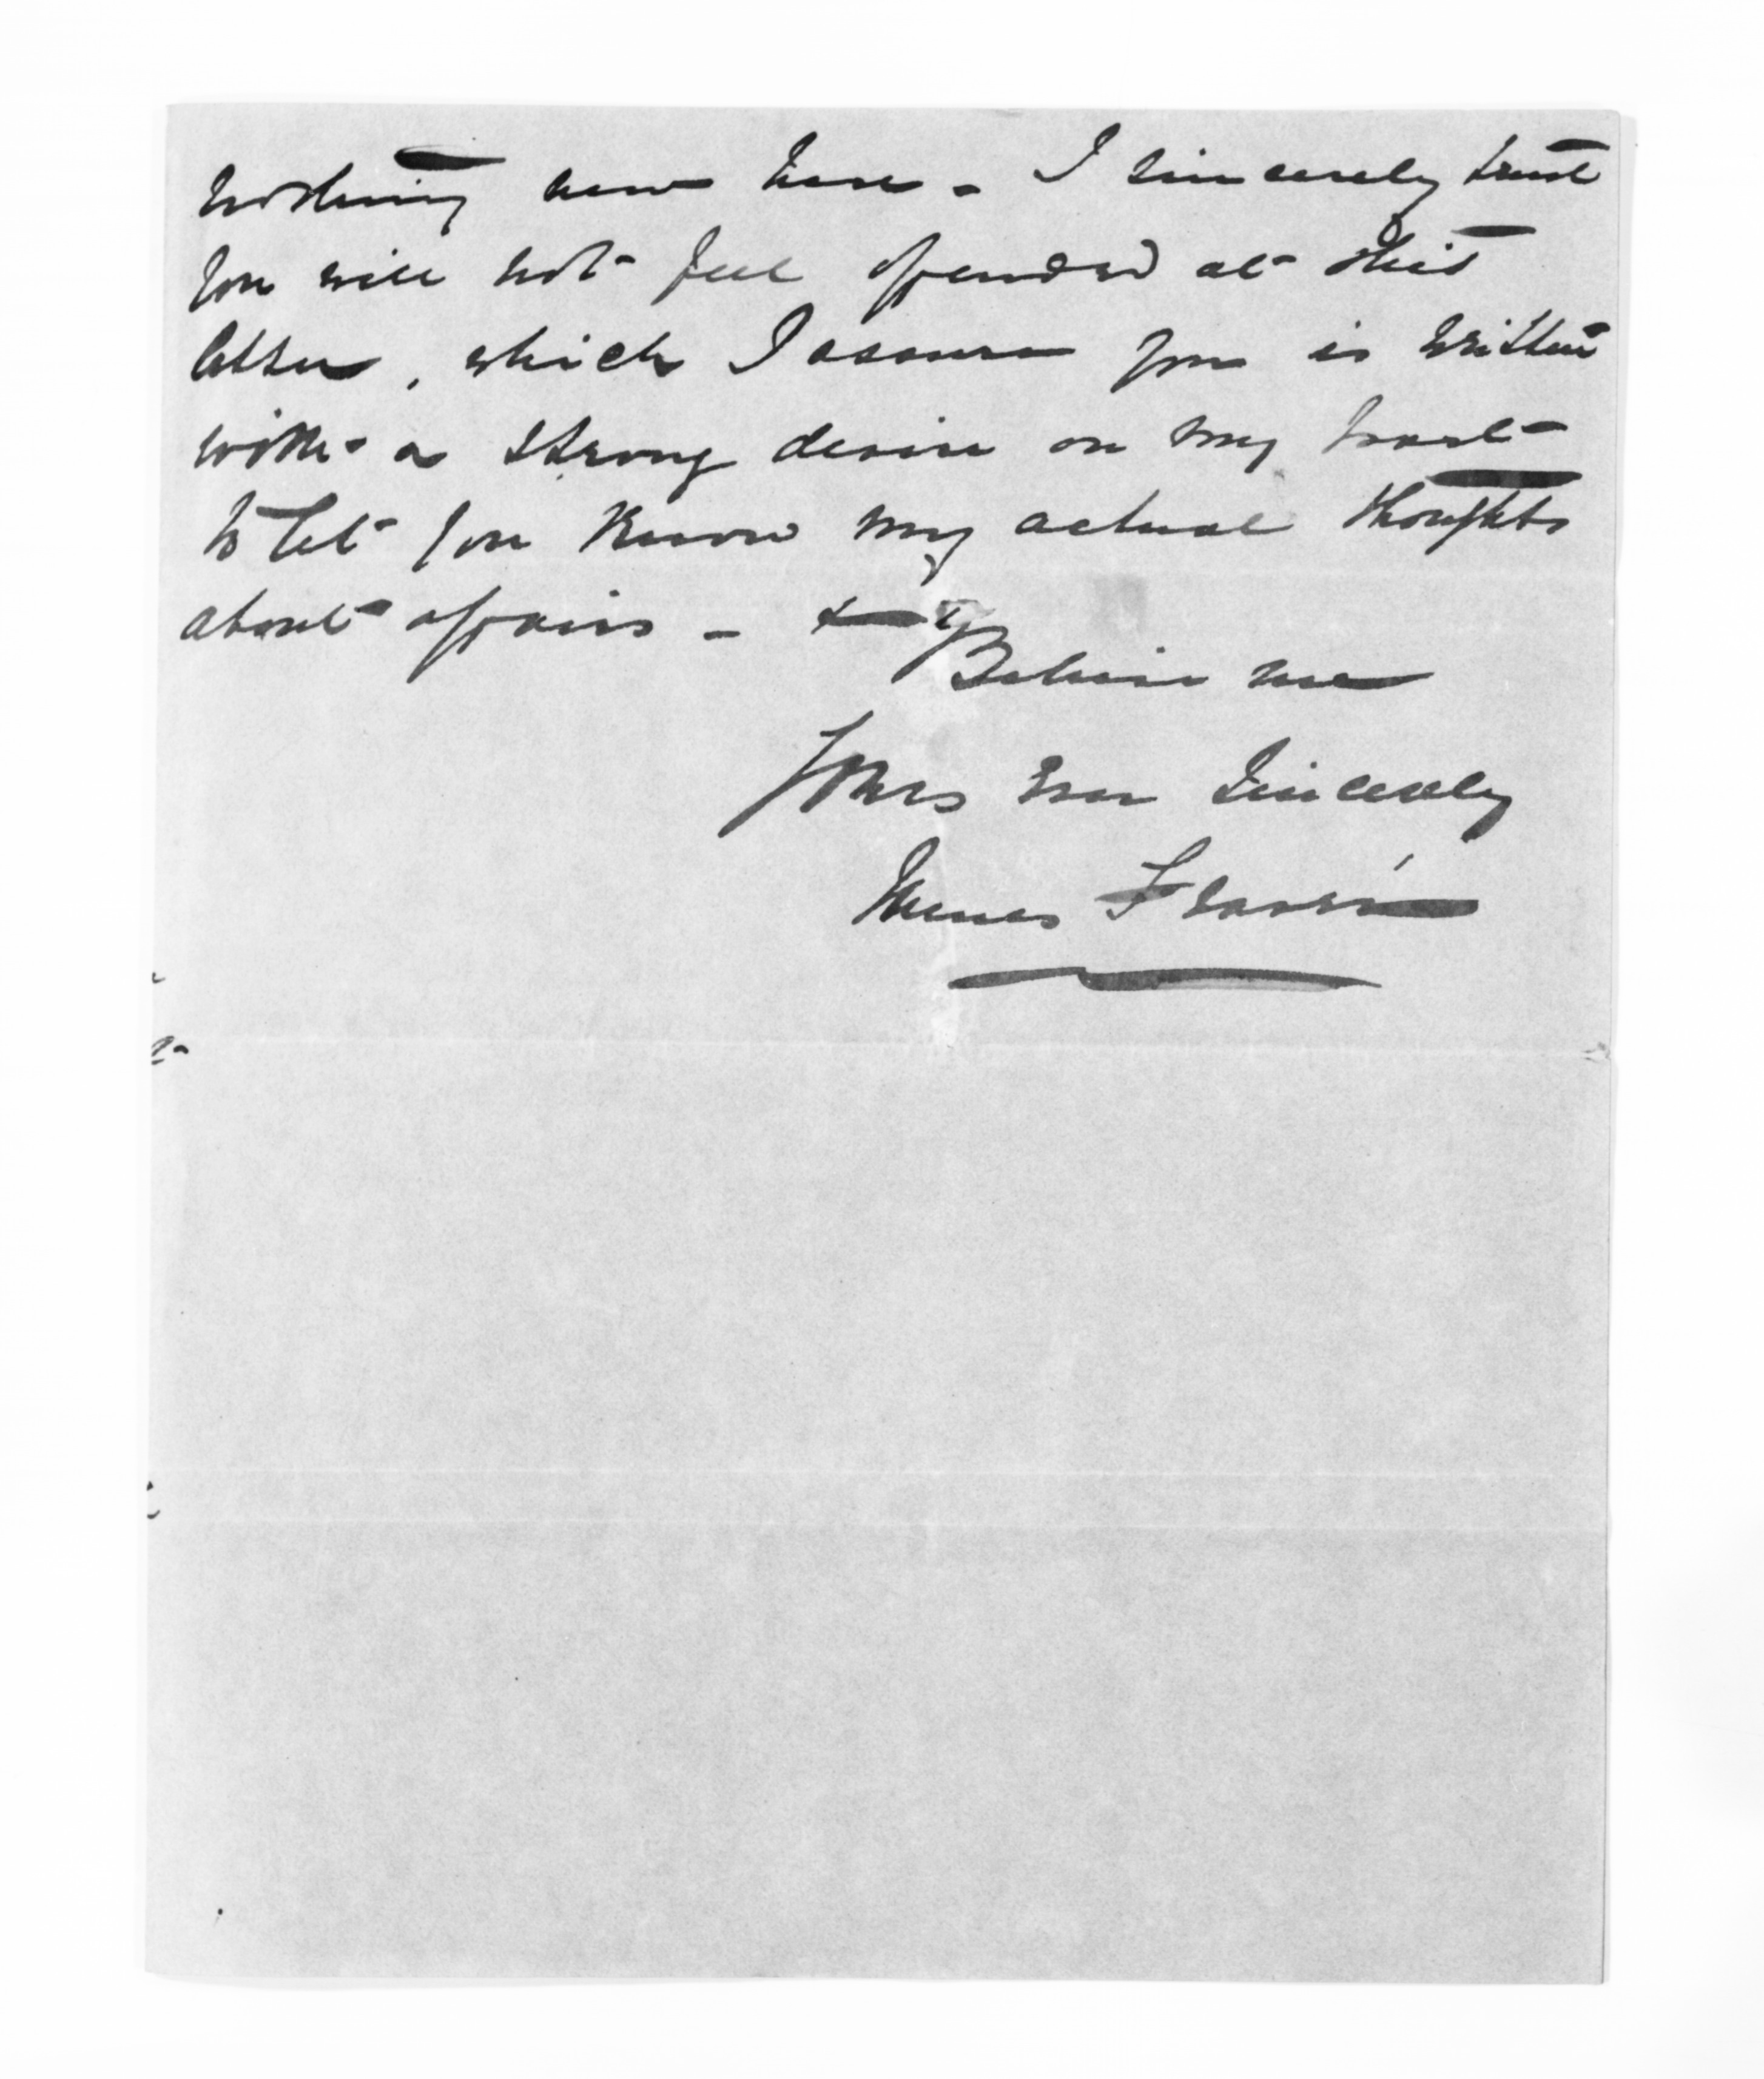 nothing new here - I sincerely trust
you will not feel offended at this
letter, which I assure you is written
with a strong desire on my part
to let you know my actual thoughts
about affairs - &
Believe me
Yours ever Sincerely
James